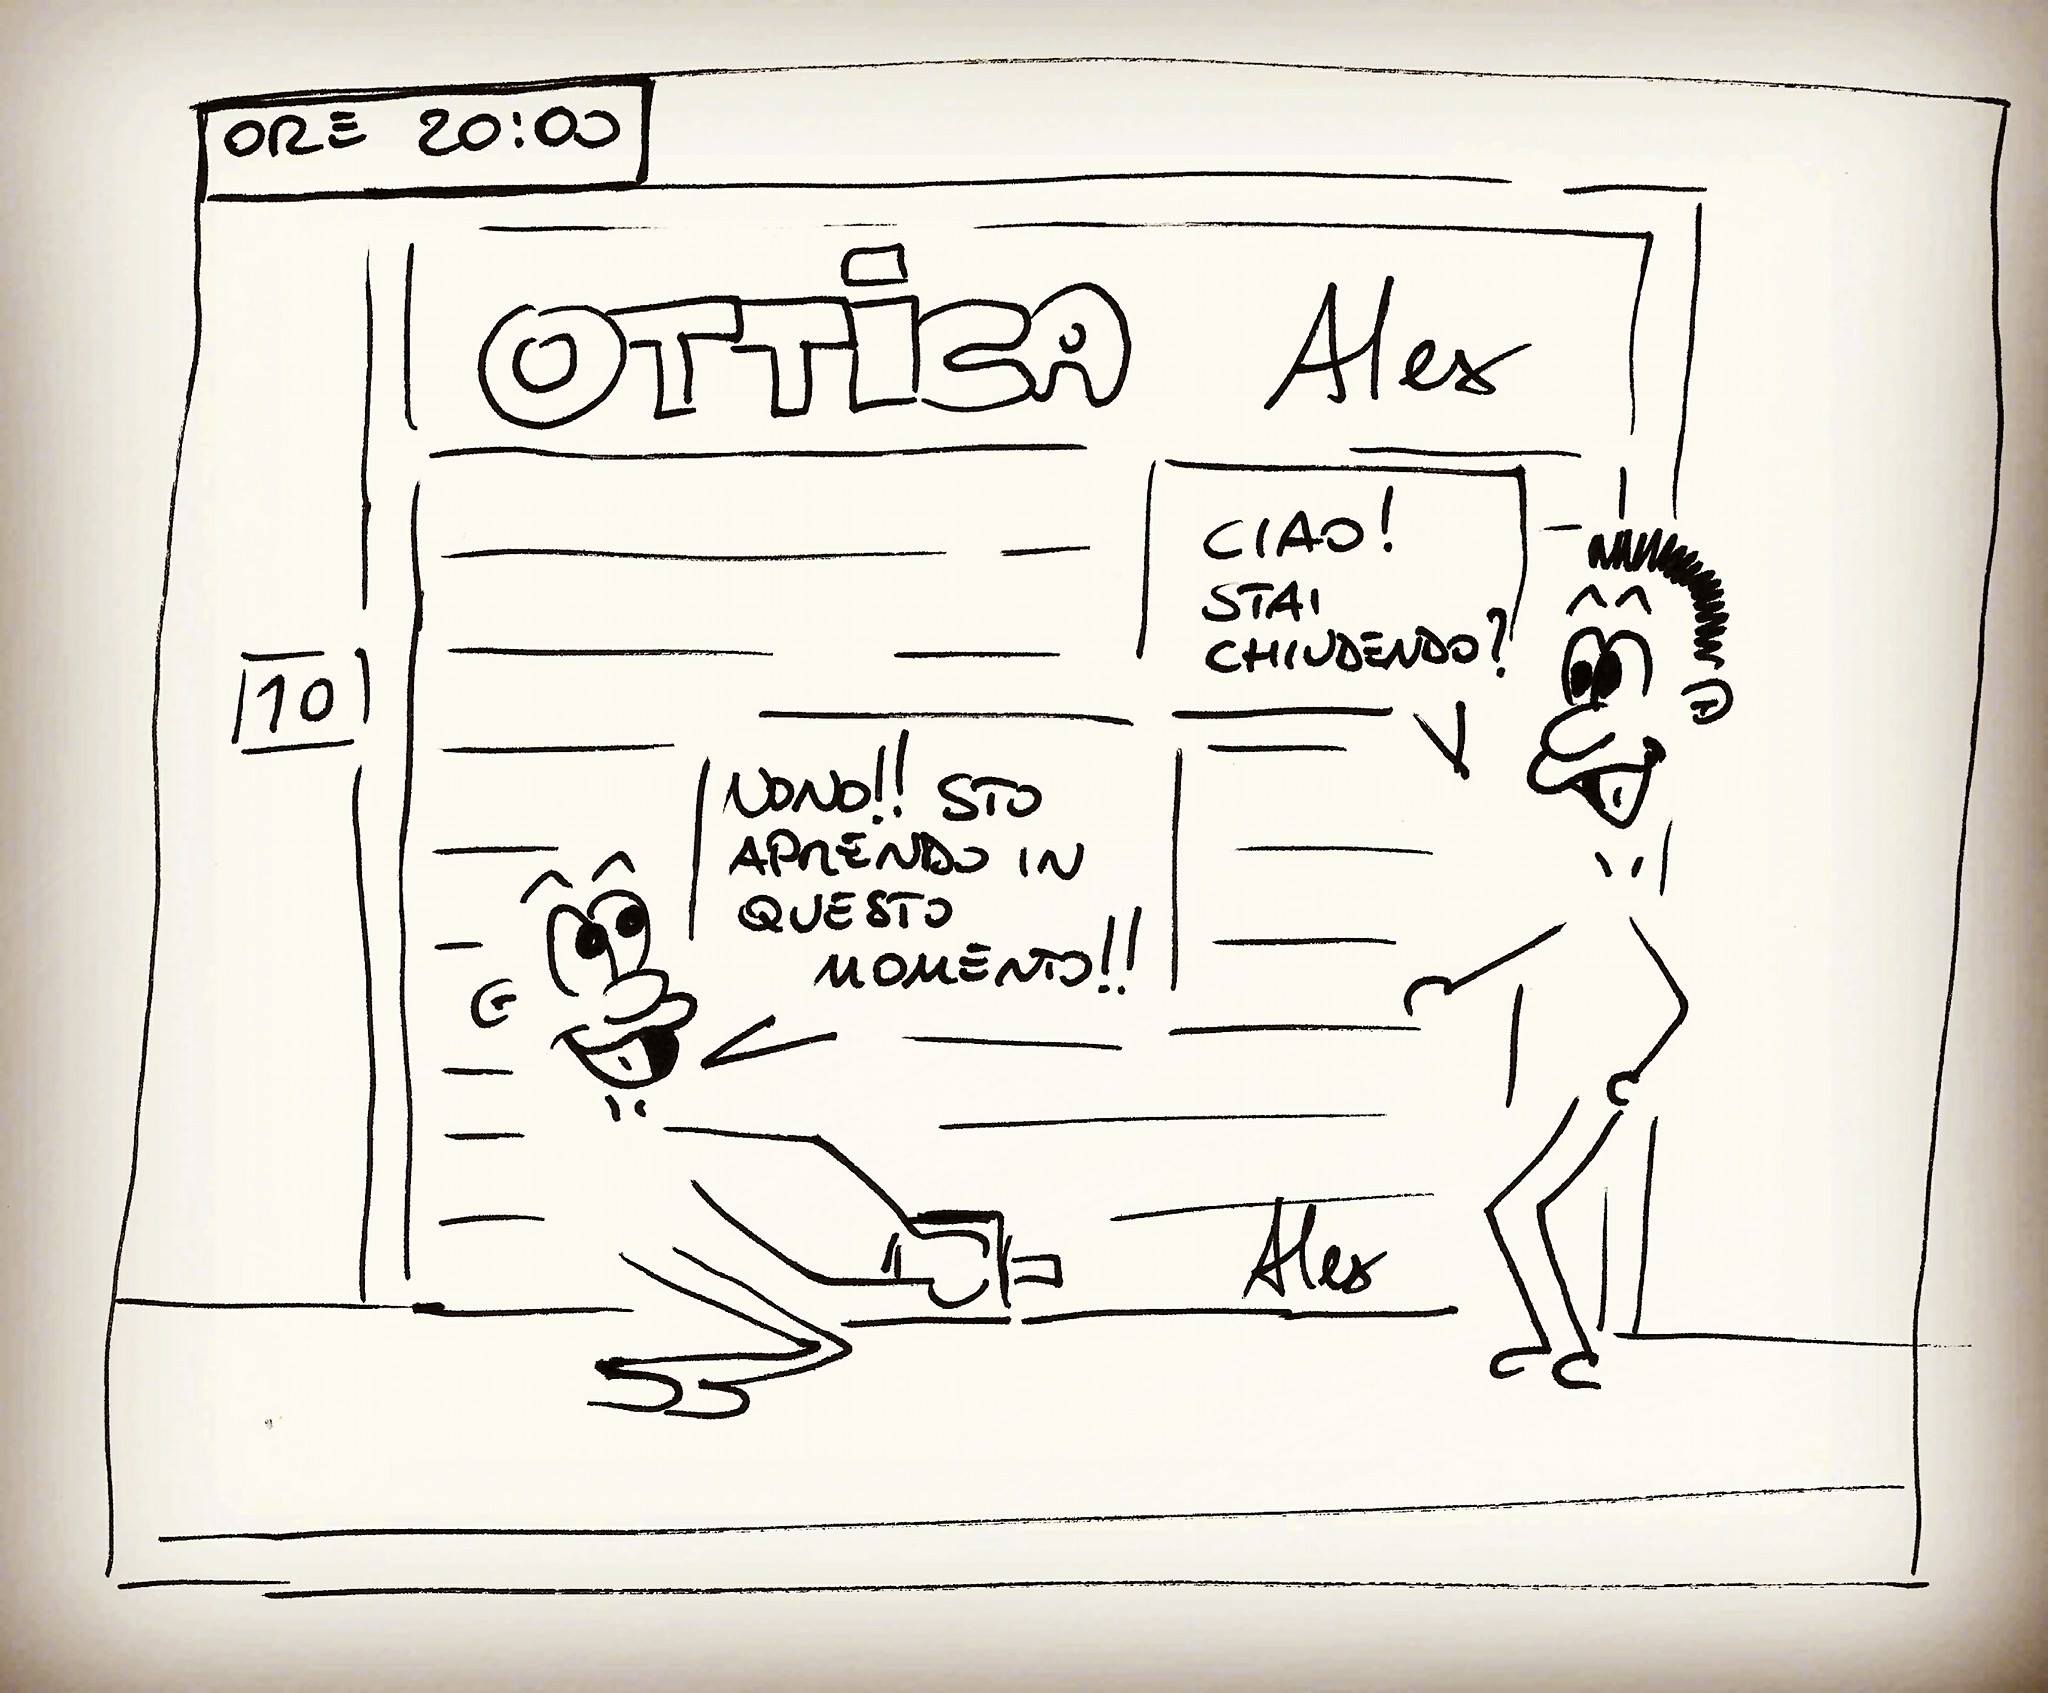 ORE 20:00
OTTiCA Alex
CIAO!
STAI
CHIUDENDO?
10
NONO!! STO
APRENDO IN
QUESTO
MOMENTO!!
Alex